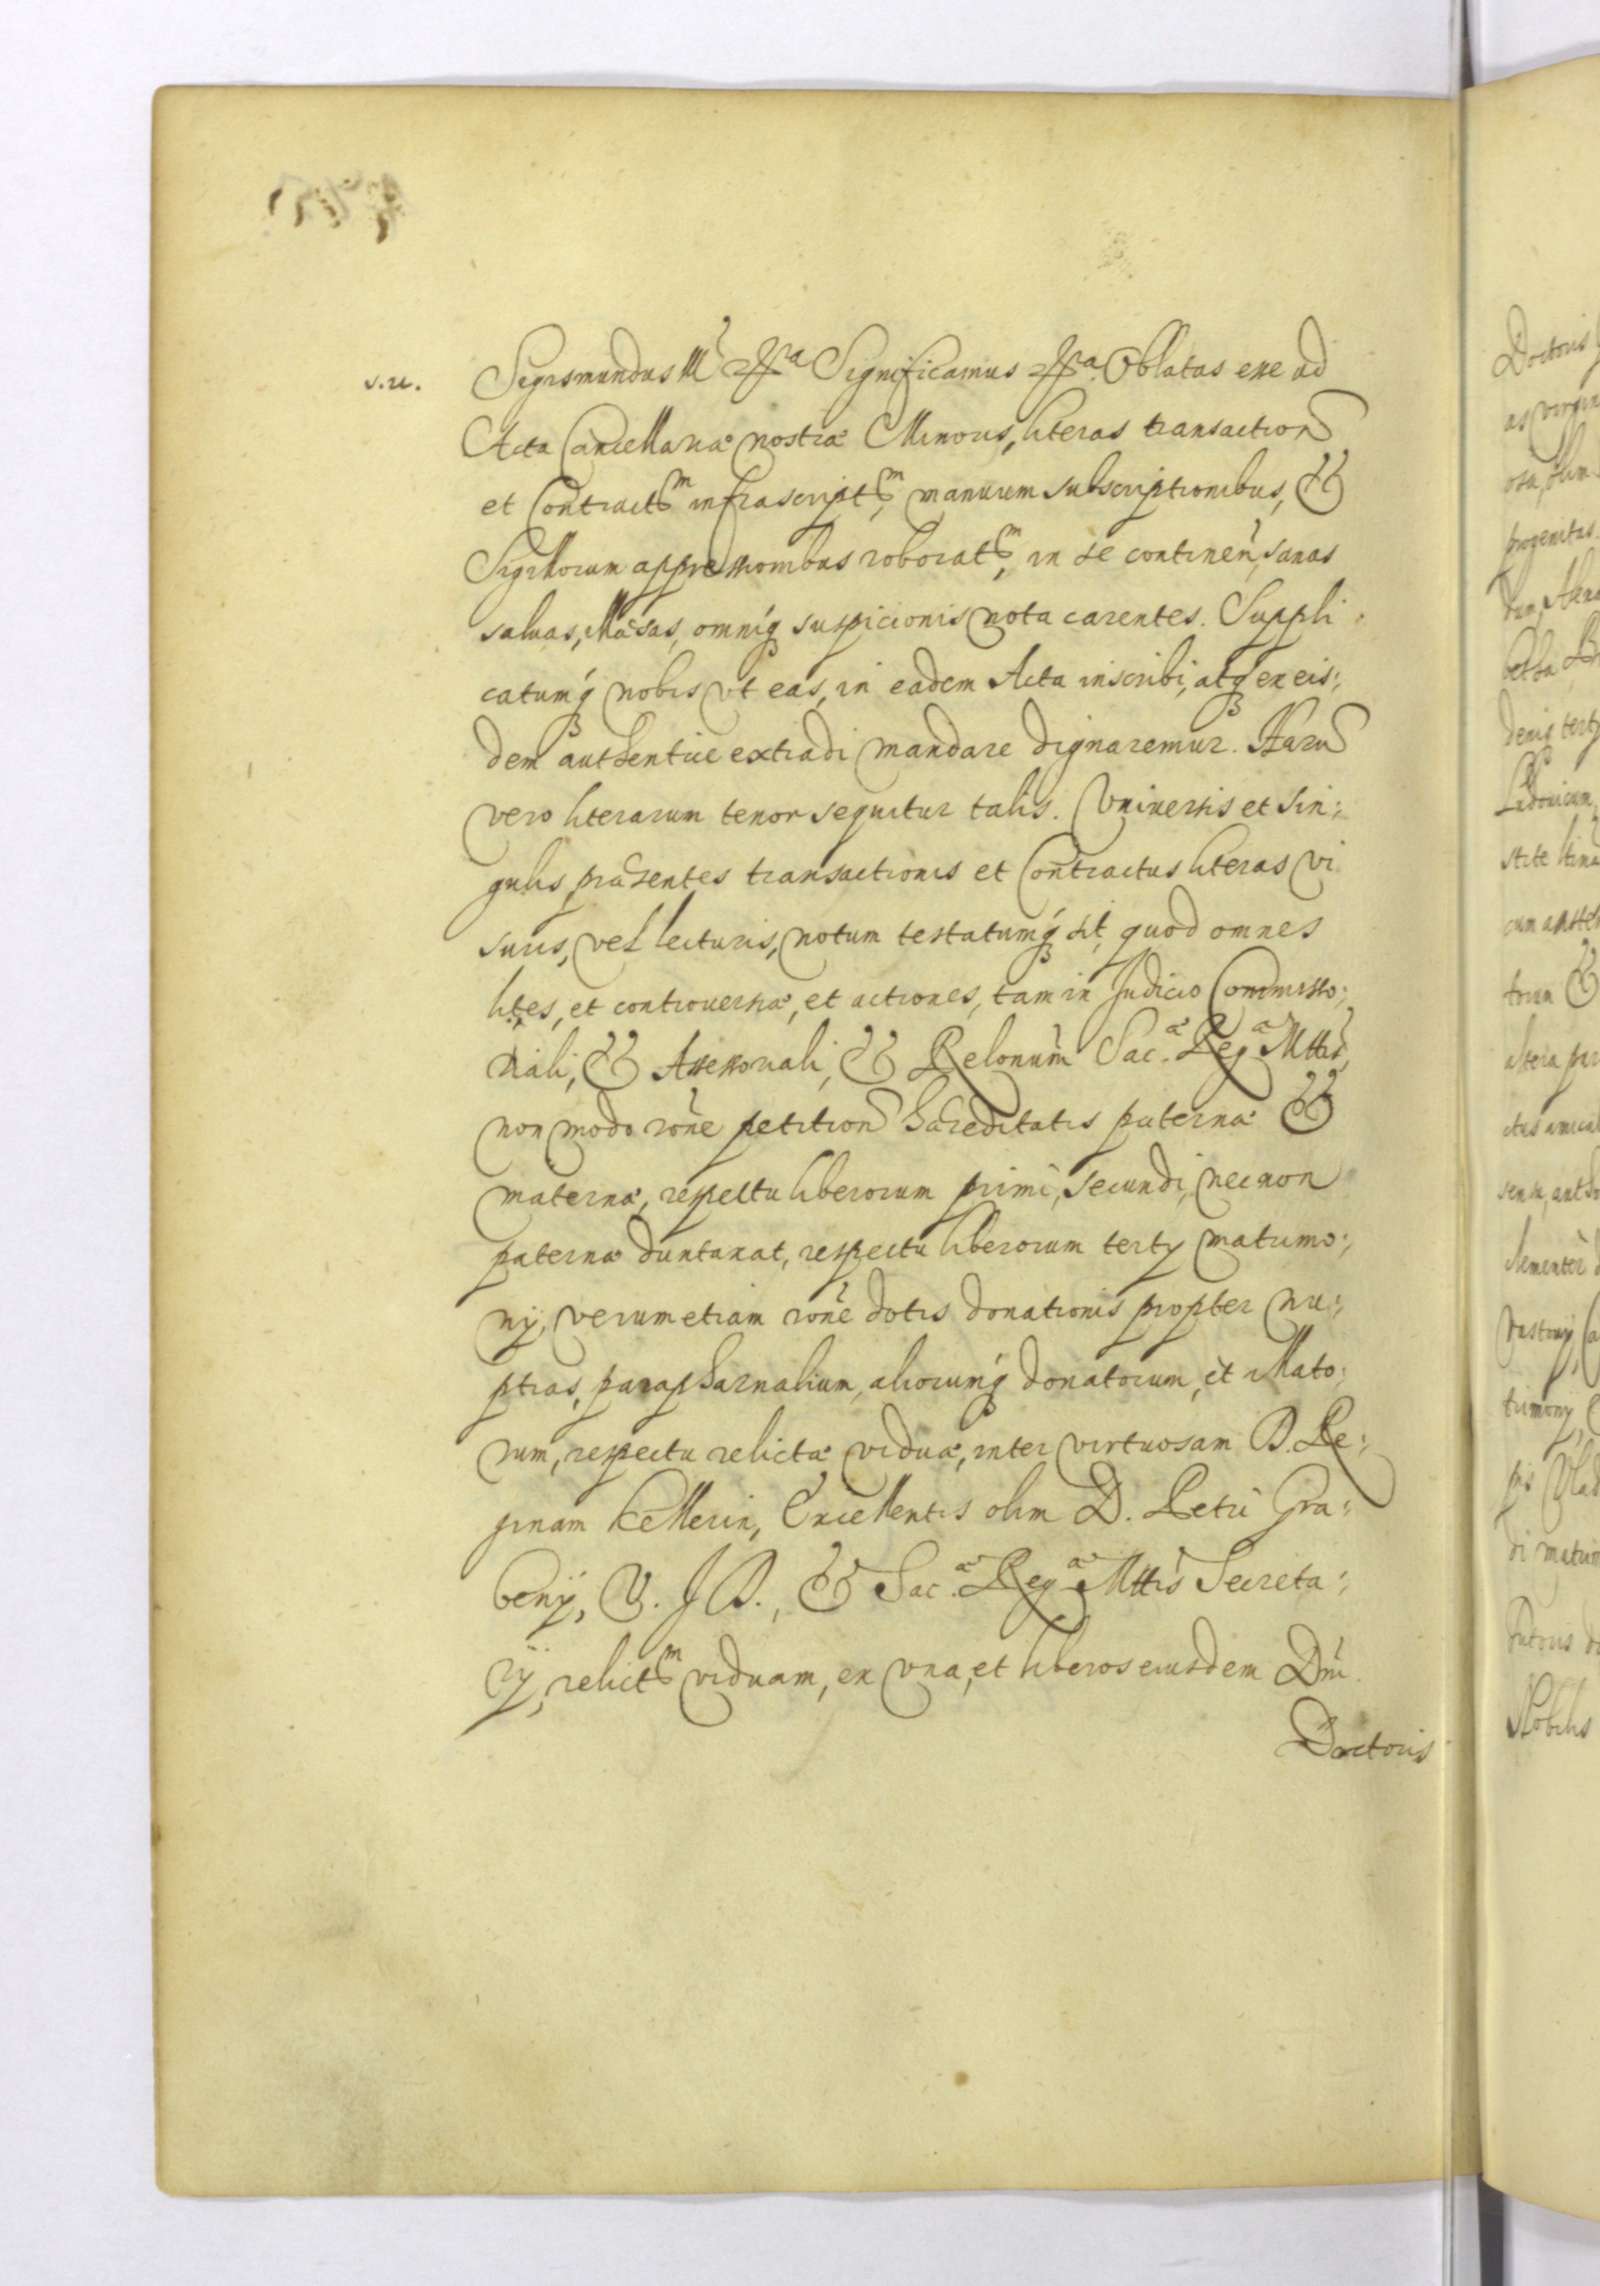 s.u. Sigismundus III etc. Significamus etc. Oblatas esse ad
Acta Cancellariæ nostræ Minoris, literas transaction
et Contractm infrascriptm, manuum subscriptionibus, &
Sigillorum appressionibus roboratm, in se continen, sanas
saluas, illæsas, omniq suspicionis nota carentes. Suppli:
catumq nobis vt eas, in eadem Acta inscribi, atq ex eis:,
dem authentice extradi mandare dignaremur. Haru
vero literarum tenor sequitur talis. Vniuersis et Sin:,
gulis præsentes transactionis et Contractus literas vi
suris, vel lecturis, notum testatumq sit, quod omnes
lites, et controuersiæ, et actiones, tam in Judicio Commisso:,
riali, & Assessoriali, & Relonum Sac.æ Reg.æ Mttis,
non modo rone petition hæreditatis paternæ &
maternæ, respectu liberorum primi, secundi, necnon
paternæ duntaxat, respectu liberorum tertij matrimo:,
nij, verum etiam rone dotis donationis propter nu:,
ptias, paraphernalium, aliorumq donatorum, et illato:,
rum, respectu relictæ viduæ, inter virtuosam D. Re:,
ginam Kellerin, Excellentis olim D. Petri Gra:,
benij, V. J. D., & Sac.æ Reg.æ Mttis Secreta:,
rij, relictm viduam, ex vna, et liberos eiusdem Dni.
Doctoris